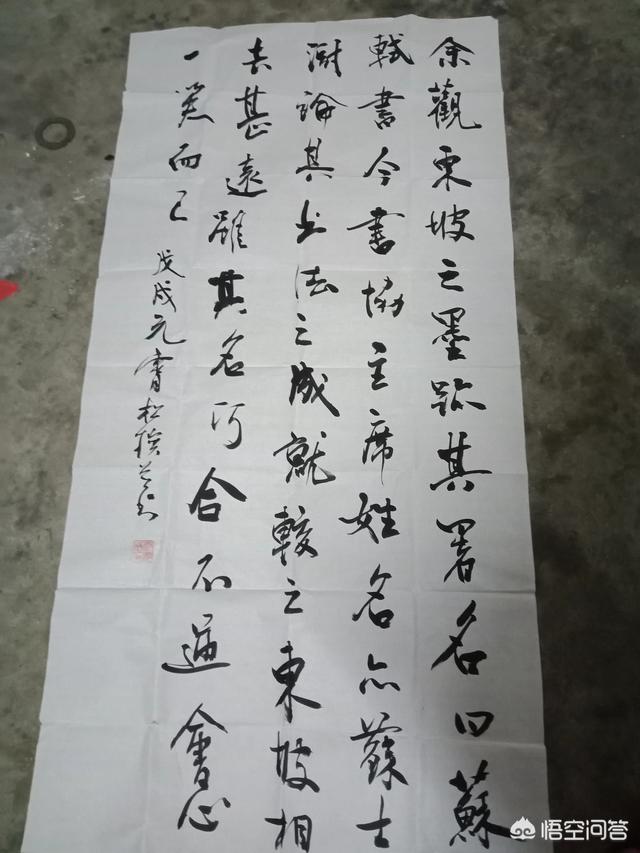 余觀東坡之墨跡其署名曰蘇
軾書今書協主席姓名亦蘇士
澍論其书法之成就較之東坡相
去甚遠雖其名巧合不過會心
一笑而已
戊戌元宵松
悟空问答